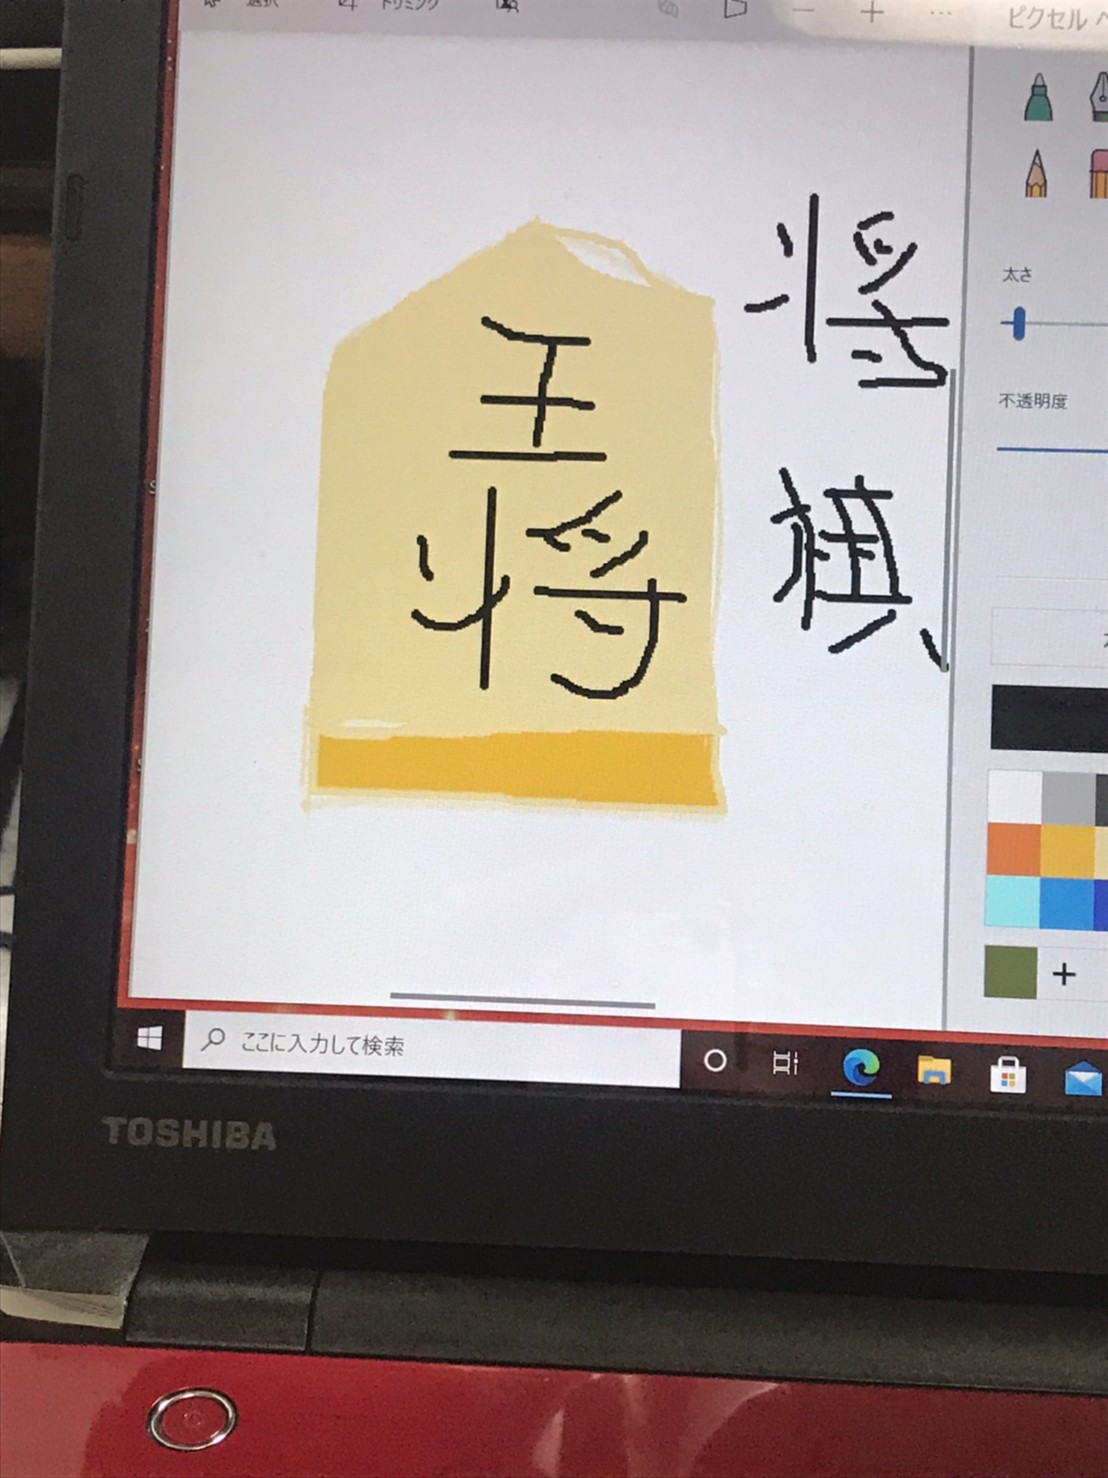 選択
トリミング
ピクセル
王
将
将
棋
太さ
不透明度
ここに入力して検索
TOSHIBA